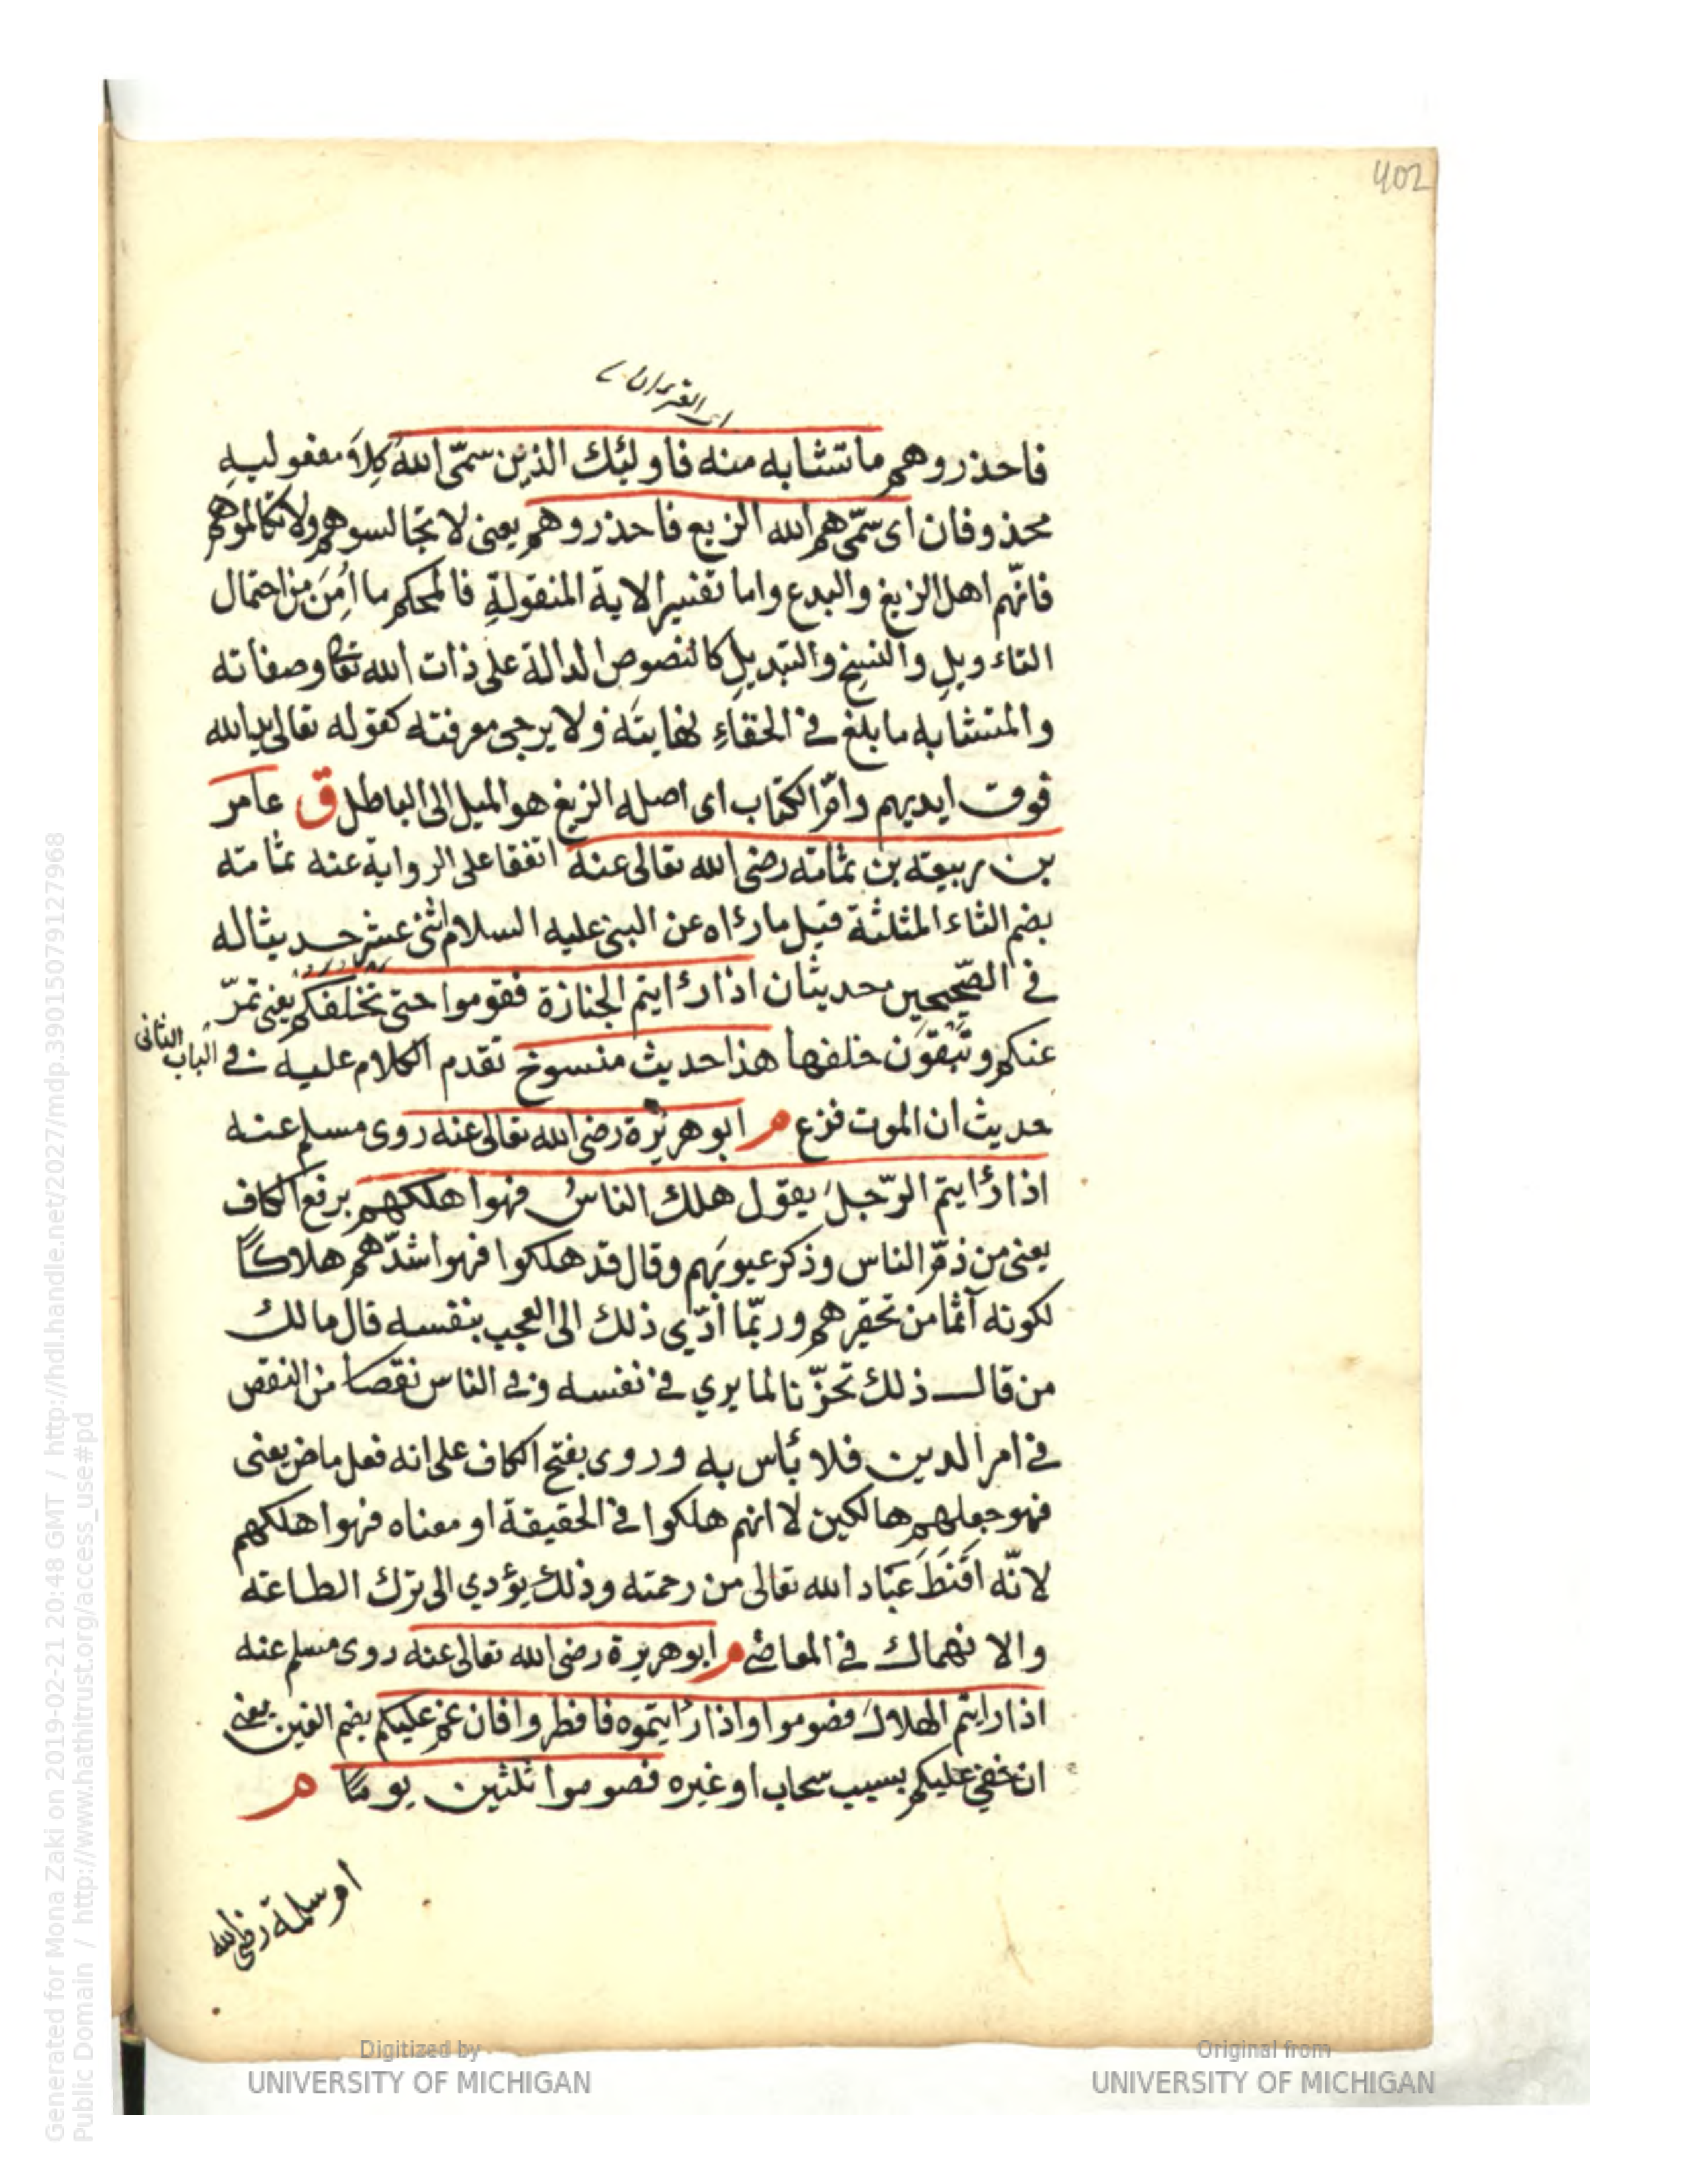 402
اى القرآن
فاحذروهم ما تشابه منه فاولئك الذين سمّى اللهُ كِلَا مفعوليه
محذوفان اى سمّيهم الله الزيع فاحذروهم يعنى لا تجالسوهم ولا تكالموهم
فانّهم اهل الزيغ والبدع واما تفسير الاية المنقولةِ فالمحكم ما اُمِنَ من احتمال
التاءويلِ والنسخِ والتبديلِ كالنصوص الدالة على ذات الله تعا وصفاته
والمتشابه ما بلغ فى الخفاءِ نهايتَه ولا يرجى معرفته كقوله تعالى يد الله
فوق ايديهم وامّ الكتاب اى اصله الزيغ هو الميل الى الباطل ق عامر
بن ربيعه بن ثمامته رضى الله تعالى عنه اتفقا على الرواية عنه ثمامته
بضم الثاء المثلثة قيل ما رئاه عن النبى عليه السلام اثنى عشر حديثا له
فى الصّحيحين حديثان اذا رئايتم الجنازة فقوموا حتى تخلفكم يعنى تمرّ
عنكم وتَبْقَوْن خلفها هذا حديث منسوخ تقدم الكلام عليه فى الباب الثانى
حديث ان الموت فزع م ابو هريرة رضى الله تعالى عنه روى مسلم عنه
اذا رئايتم الرّجلَ يقول هلك الناسُ فهو اهلكهم برفع الكاف
يعنى من ذمّ الناس وذكر عيوبَهم وقال قد هلكوا فهو اشدّهم هلاكًا
لكونه آثما من تحقيرهم وربّما ادّي ذلك الى العجب بنفسه قال مالك
من قال ذلك تحزّنا لما يري فى نفسه وفى الناس نقصا من النقص
فى امر الدين فلا بأس به وروى بفتح الكاف على انه فعل ماض يعنى
فهو جعلهم هالكين لا انهم هلكوا فى الحقيقة او معناه فهو اهلكهم
لانّه اقْنَطَ عبَاد الله تعالى من رحمته وذلك يؤدي الى ترك الطاعته
والانهماك فى المعاصى م ابو هريرة رضى الله تعالى عنه روى مسلم عنه
اذا رايتم الهلالَ فصوموا واذا رئايتموه فافطروا فان غم عليكم بضم الغين يعنى
ان خفى عليكم بسبب سحاب او غيره فصوموا ثلثين يومًا م
ام سلمة رضى الله
Generated for Mona Zaki on 2019-02-21 20:48 GMT / http://hdl.handle.net/2027/mdp.39015079127968
Public Domain / http://www.hathitrust.org/access_use#pd
Digitized by
UNIVERSITY OF MICHIGAN
Original from
UNIVERSITY OF MICHIGAN